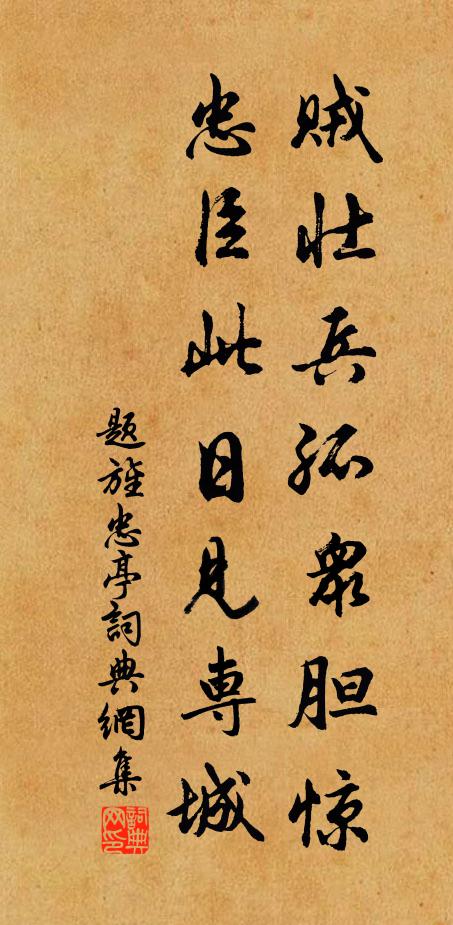 贼壮兵孤衆胆惊
忠臣此日见専城
题旌忠亭詞典網集
詞典網印